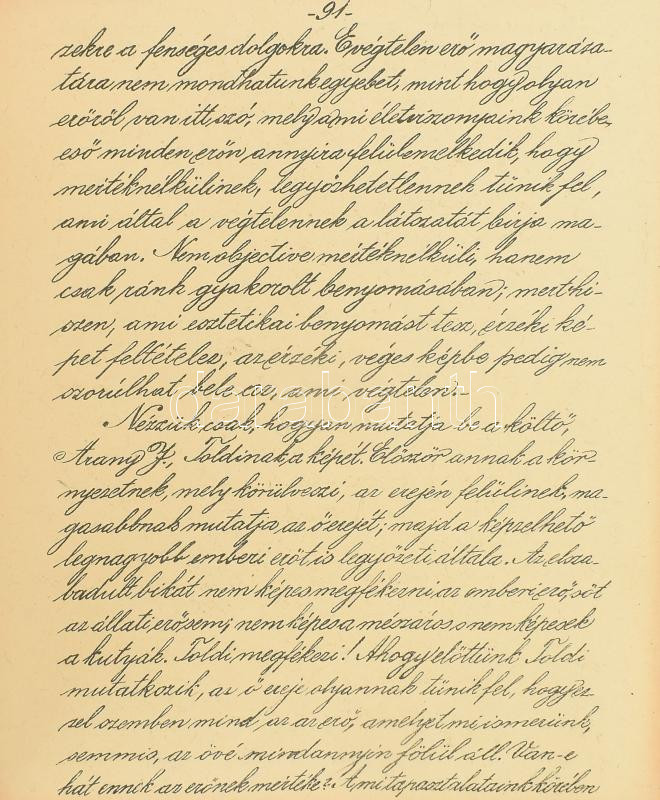 -91-
zekre a fenséges dolgokra. E végtelen erő magyaráza-
tára nem mondhatunk egyebet, mint hogy olyan
erőről van itt szó, mely a mi életviszonyaink körébe
eső minden erőn annyira felülemelkedik, hogy
mértéknélkülinek, legyőzhetetlennek tűnik fel,
ami által a végtelennek a látszatát bírja ma-
gában. Nem objective mértéknélküli, hanem
csak ránk gyakorolt benyomásában; mert hi-
szen, ami esztetikai benyomást tesz, érzéki ké-
pet feltételez, az érzéki, véges képbe pedig nem
szorúlhat bele az, ami végtelen.-
Nézzük csak, hogyan mutatja be a költő,
Arany J., Toldinak a képét. Először annak a kör-
nyezetnek, mely körülveszi, az erején felülinek, ma-
gasabbnak mutatja az ő erejét; majd a képzelhető
legnagyobb emberi erőt is legyőzeti általa. Az elsza-
badult bikát nem képes megfékezni az emberi erő, sőt
az állati erő sem; nem képes a mészáros s nem képesek
a kutyák. Toldi megfékezi! Ahogy előttünk Toldi
mutatkozik, az ő ereje olyannak tűnik fel, hogy ez-
zel szemben mind az az erő, amelyet mi ismerünk,
semmis, az övé mindannyin fölül áll. Van-e
hát ennek az erőnek mértéke? A mi tapasztalataink körében
databanth